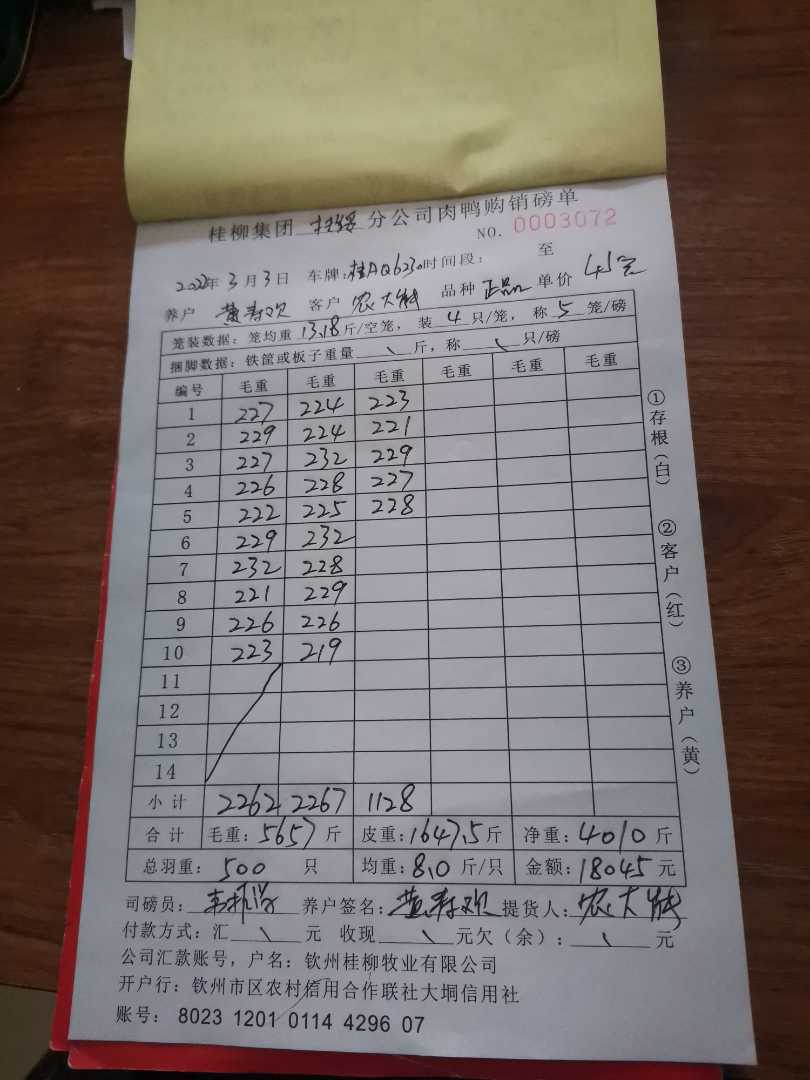 桂柳集团 分公司肉鸭购销磅单
NO. 0003072
202 年 3 月 3 日 车牌:桂AQ6230 时间段: 至
养户 黄寿欢 客户 农大 品种 正品 单价 4.5元
笼装数据:笼均重 13.18 斤/空笼, 装 4 只/笼, 称 5 笼/磅
捆脚数据:铁筐或板子重量 \ 斤,称 \ 只/磅
编号 毛重 毛重 毛重 毛重 毛重 毛重
1 227 224 223
2 229 224 221
3 227 232 229
4 226 228 227
5 222 225 228
6 229 232
7 232 228
8 221 229
9 226 226
10 223 219
11
12
13
14
小计 2262 2267 1128
合计 毛重:5657 斤 皮重:1647.5 斤 净重:4010 斤
总羽重:500 只 均重:8.0 斤/只 金额:18045 元
司磅员: 养户签名:黄寿欢 提货人:农大
付款方式:汇 \ 元 收现 \ 元欠(余):\ 元
公司汇款账号,户名:钦州桂柳牧业有限公司
开户行:钦州市区农村信用合作联社大垌信用社
账号: 8023 1201 0114 4296 07
①存根(白) ②客户(红) ③养户(黄)